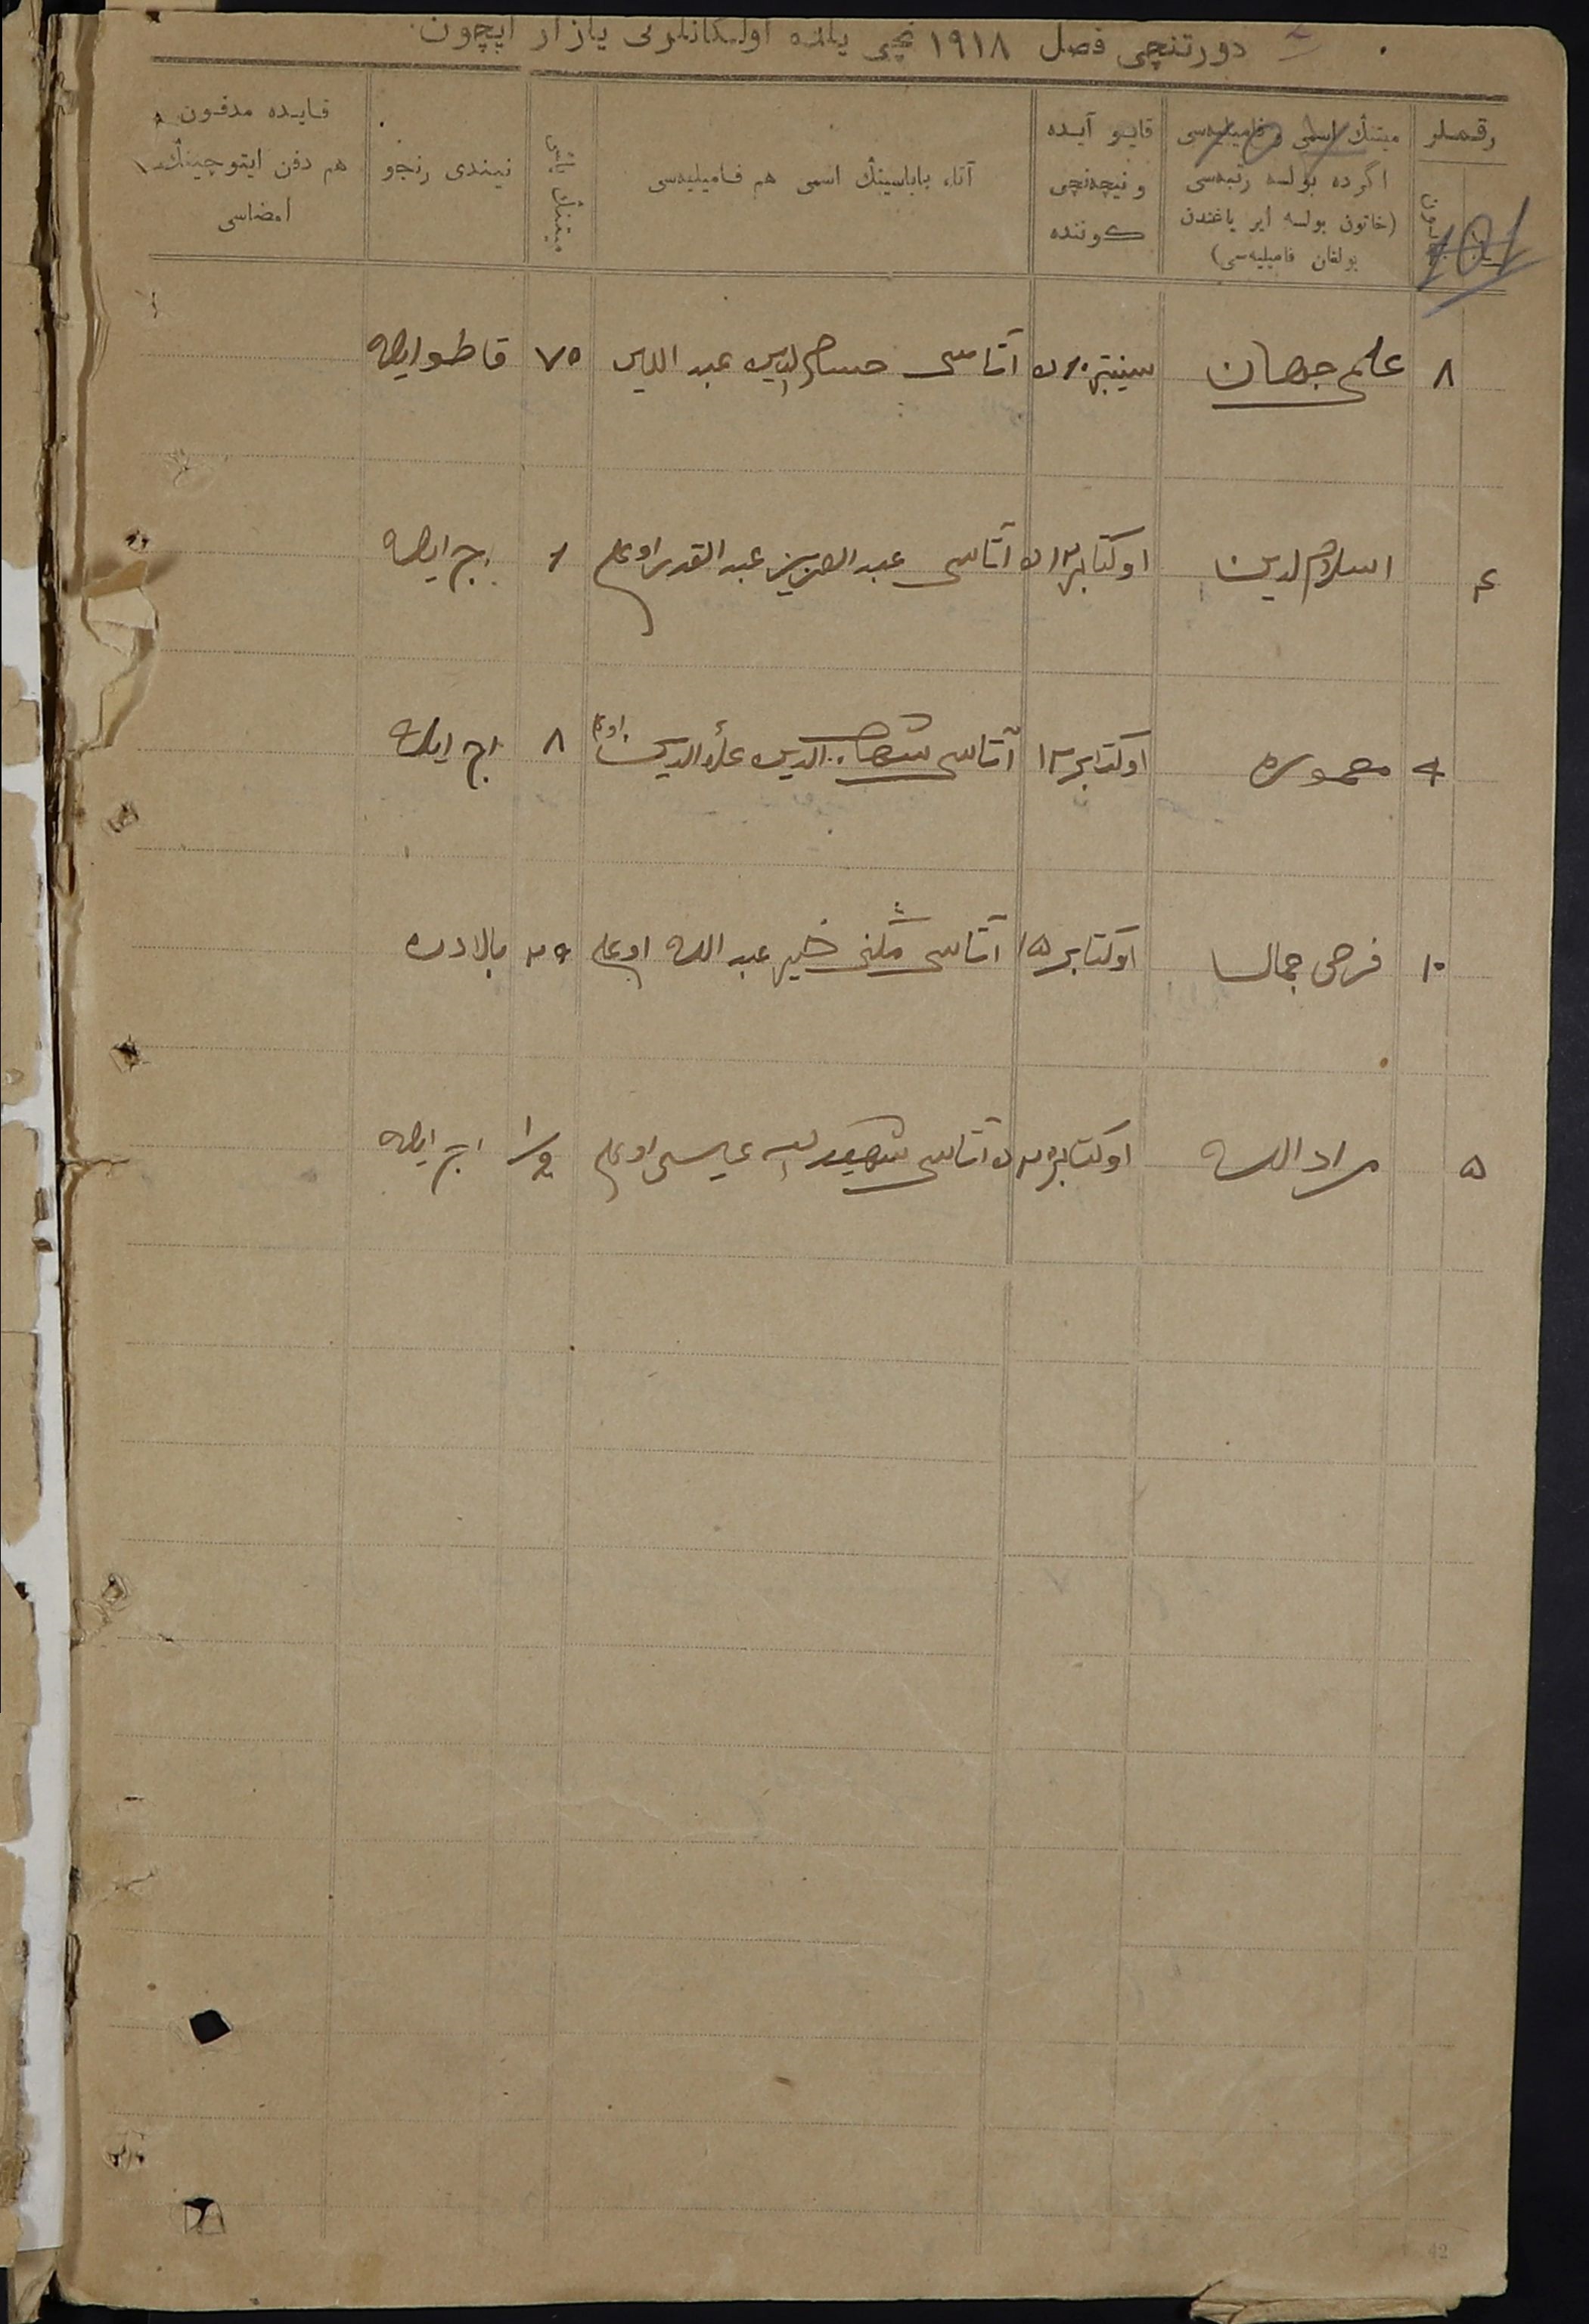 دورتنچی فصل ١٩١٨ نچی یلده اولگانلرنی یازار ایچون
رقملر
میتنڭ اسمی و فامیلیه‌سی
اگر ده بولسه رتبه‌سی
(خاتون بولسه ایر یاغندن
بولغان فامیلیه‌سی)
قایو آیده
و نیچه‌نچی
كوننده
آتا، باباسینڭ اسمی هم فامیلیه‌سی
میتنڭ یاشی
نیندی رنجو
قایده مدفون
هم دفن ایتوچینڭ
امضاسی
101
٨ علم جهان سینتبر آتاسی حسام الدین عبد الدین ٧٥
٤ اسلام الدین اوكتابر آتاسی عبد العزیز عبد القدیر اوغلی ١ اچ ایله
٩ معموره اوكتابر ١٣ آتاسی شهاب الدین علاء الدین اوغلی ٨ اچ ایله
١٠ فرحی جمال اوكتابر ١٥ آتاسی عبد الله اوغلی بالادن
٥ مراد الله اوكتابر آتاسی عیسی اوغلی اچ ایله
42